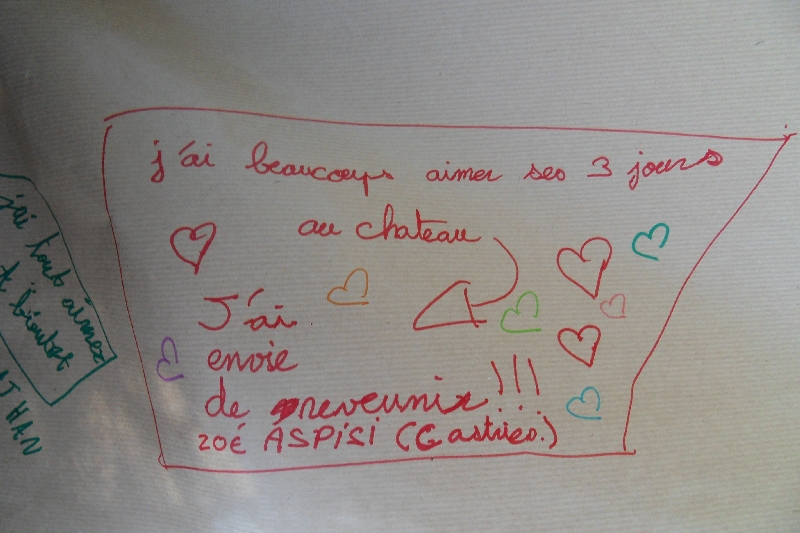 j'ai beaucoups aimer ses 3 jours
au chateau
J'ai
envie
de reveunir !!!
ZOÉ ASPISI (Castries.)
j'ai tout aimer
THAN